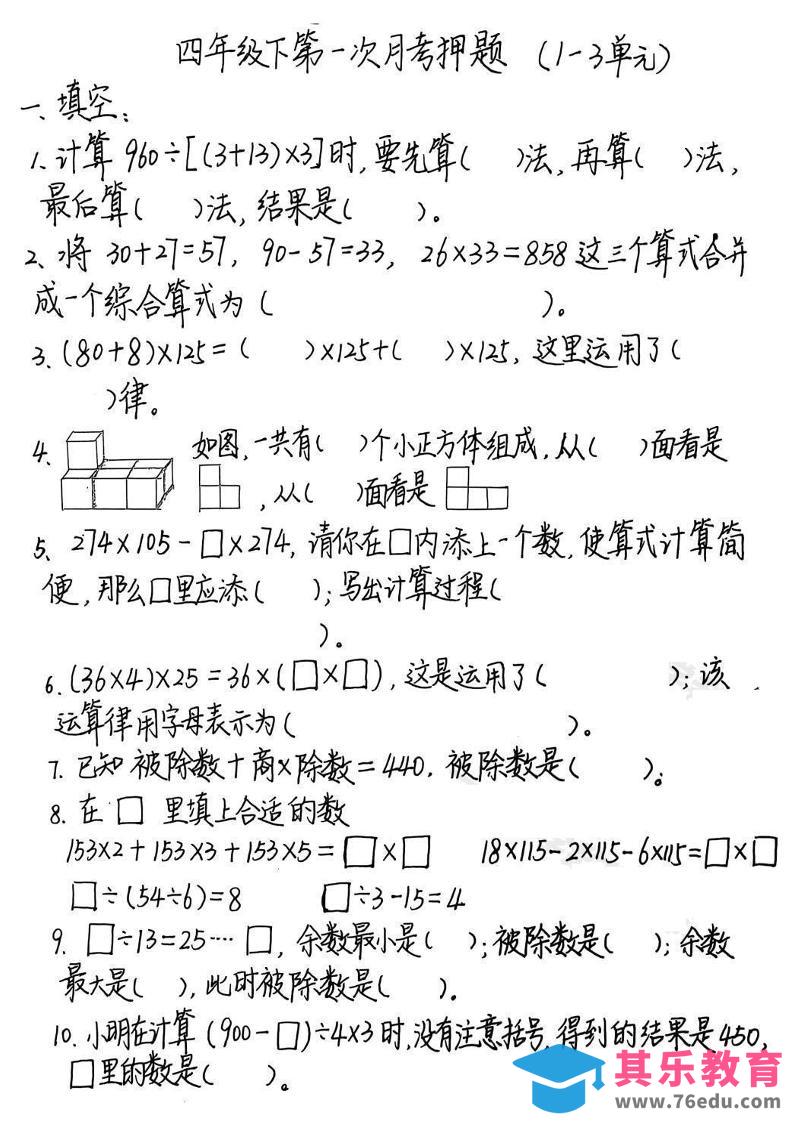 四年级下第一次月考押题 (1-3单元)
一、填空:
1.计算 960÷[(3+13)×3]时,要先算(  )法,再算(  )法,
最后算(  )法,结果是(  )。
2、将 30+27=57, 90-57=33, 26×33=858 这三个算式合并
成一个综合算式为(  )。
3、(80+8)×125=(  )×125+(  )×125,这里运用了(
)律。
4、 如图,一共有(  )个小正方体组成,从(  )面看是
,从(  )面看是
5、274×105-□×274,请你在□内添上一个数,使算式计算简
便,那么□里应添(  );写出计算过程(
)。
6.(36×4)×25=36×(□×□),这是运用了(  );该
运算律用字母表示为(  )。
7. 已知被除数+商×除数=440,被除数是(  )。
8. 在 □ 里填上合适的数
153×2+153×3+153×5=□×□ 18×115-2×115-6×115=□×□
□÷(54÷6)=8 □÷3-15=4
9. □÷13=25····□,余数最小是(  );被除数是(  );余数
最大是(  ),此时被除数是(  )。
10.小明在计算(900-□)÷4×3时,没有注意括号,得到的结果是450,
□里的数是(  )。
其乐教育
www.76edu.com